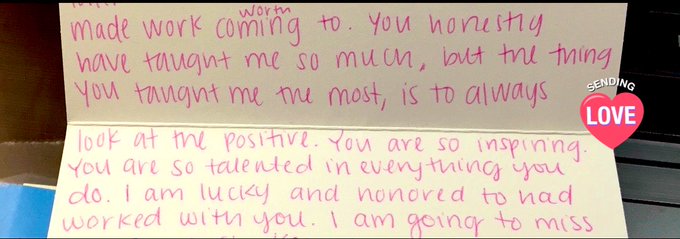 made work coming worth to. You honestly
have taught me so much, but the thing
you taught me the most, is to always
look at the positive. You are so inspiring.
You are so talented in everything you
do. I am lucky and honored to had
worked with you. I am going to miss
SENDING
LOVE